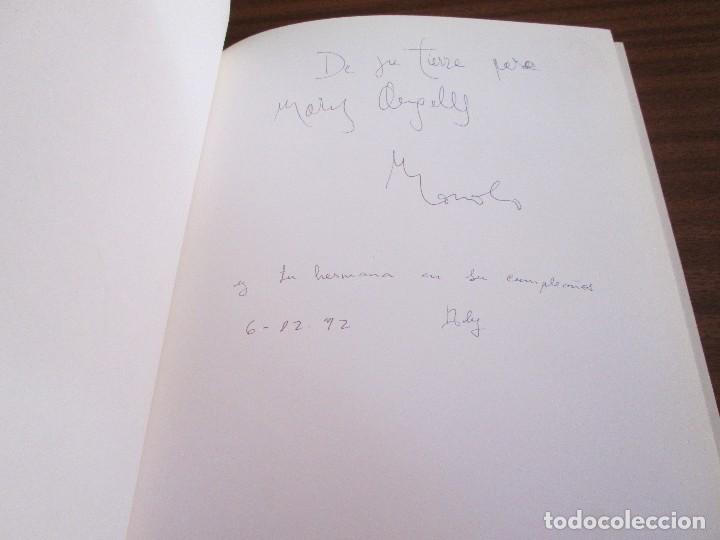 De su tierra para
Mary Angells
Manolo
y tu hermana en su cumpleaños
6-02-92 Ady
todocoleccion